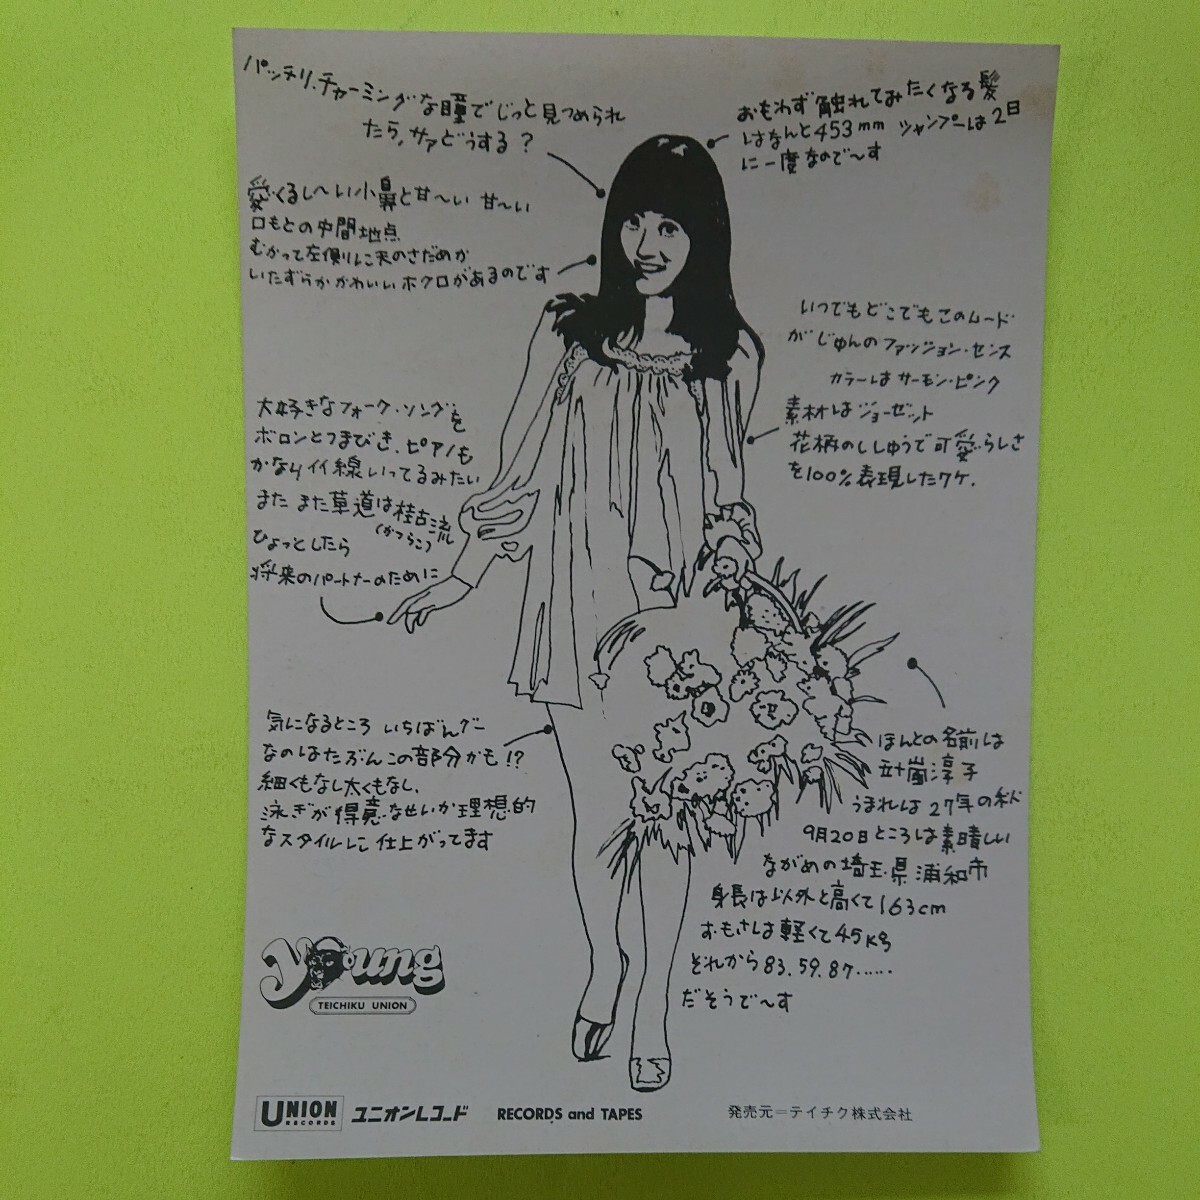 パッチリ、チャーミングな瞳でじっと見つめられ
たら、サァどうする？
おもわず触れてみたくなる髪
はなんと453mm シャンプーは2日
に一度なので〜す
愛くるし〜い小鼻と甘〜い 甘〜い
口もとの中間地点
むかって左側に天のさだめか
いたずらか かわいいホクロがあるのです
いつでもどこでもこのムード
がじゅんのファッション・センス
カラーはサーモン・ピンク
素材はジョーゼット
花柄のししゅうで可愛らしさ
を100％表現したワケ.
大好きなフォーク・ソングを
ボロンとつまびき、ピアノも
かなりイイ線いってるみたい
また また草道は桂古流
(かつらこ)
ひょっとしたら
将来のパートナーのために
気になるところ いちばんグー
なのはたぶんこの部分かも!?
細くもなし太くもなし、
泳ぎが得意なせいか理想的
なスタイルに仕上がってます
ほんとの名前は
五十嵐淳子
うまれは27年の秋
9月20日ところは素晴しい
ながめの埼玉県浦和市
身長は以外と高くて163cm
おもさは軽くて45kg
それから83.59.87……
だそうで〜す
Young
TEICHIKU UNION
UNION RECORDS ユニオンレコード RECORDS and TAPES 発売元＝テイチク株式会社